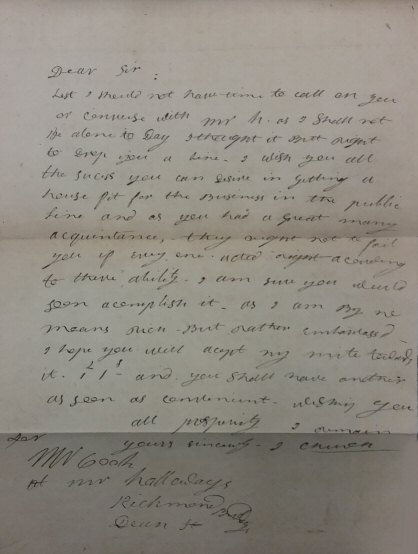 Dear Sir
Lest I should not have time to call on you
or converse with mr h. as I shall not
be alone to day I thought it But right
to drop you a line. I wish you all
the sucess you can desire in getting a
house fit for the Business in the public
line and as you had a Great many
acquintance, they ought not to fail
you if every one acted right acording
to there ability. I am sure you would
soon acomplish it - as I am By no
means rich - But rather Embarased
I hope you will acept my mite towards
it. and you shall have another
as soon as convenient. wishing you
all prosperity I remain
yours sincerely - I church
for
Mr Cook
At mr halladays
Richmond
Dean St